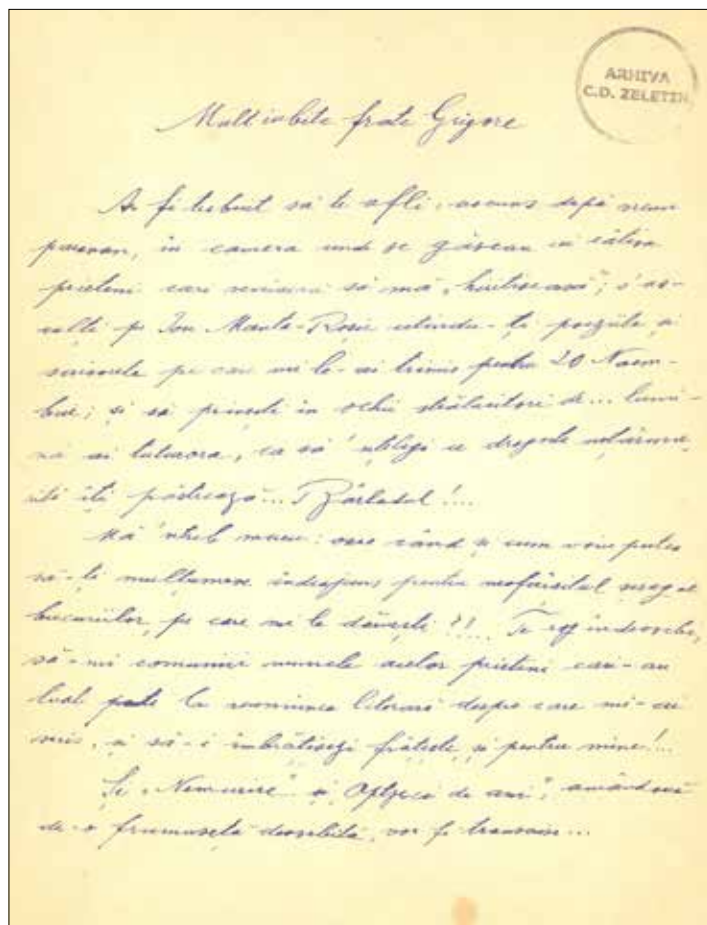 ARHIVA
C.D. ZELETIN
Mult iubite frate Grigore
Ar fi trebuit să te afli, ascuns după vreun
paravan, în camera unde se găseau cei câțiva
prieteni cari veniseră să mă „hiritisească”, s'as-
culți pe Ion Manta-Roșie cetindu-ți poeziile și
scrisorile pe care mi le-ai trimis pentru 20 Noem-
brie; și să privești în ochii strălucitori de... lumi-
nă ai tuturora, ca să 'nțelegi ce dragoste nețărmu-
rită îți păstrează... Bârladul!...
Mă 'ntreb mereu: oare când și cum voiu putea
să-ți mulțumesc îndeajuns pentru nesfârșitul
bucuriilor, pe care mi le dăruești?!... Te rog îndeosebi,
să-mi comunici numele acelor prieteni cari-au
luat parte la reuniunea literară despre care mi-ai
scris, și să-i îmbrățișezi frățește și pentru mine!...
Și „Nemurire” și „Optzeci de ani”, amândouă
de-o frumusețe deosebită, vor fi transcrise...